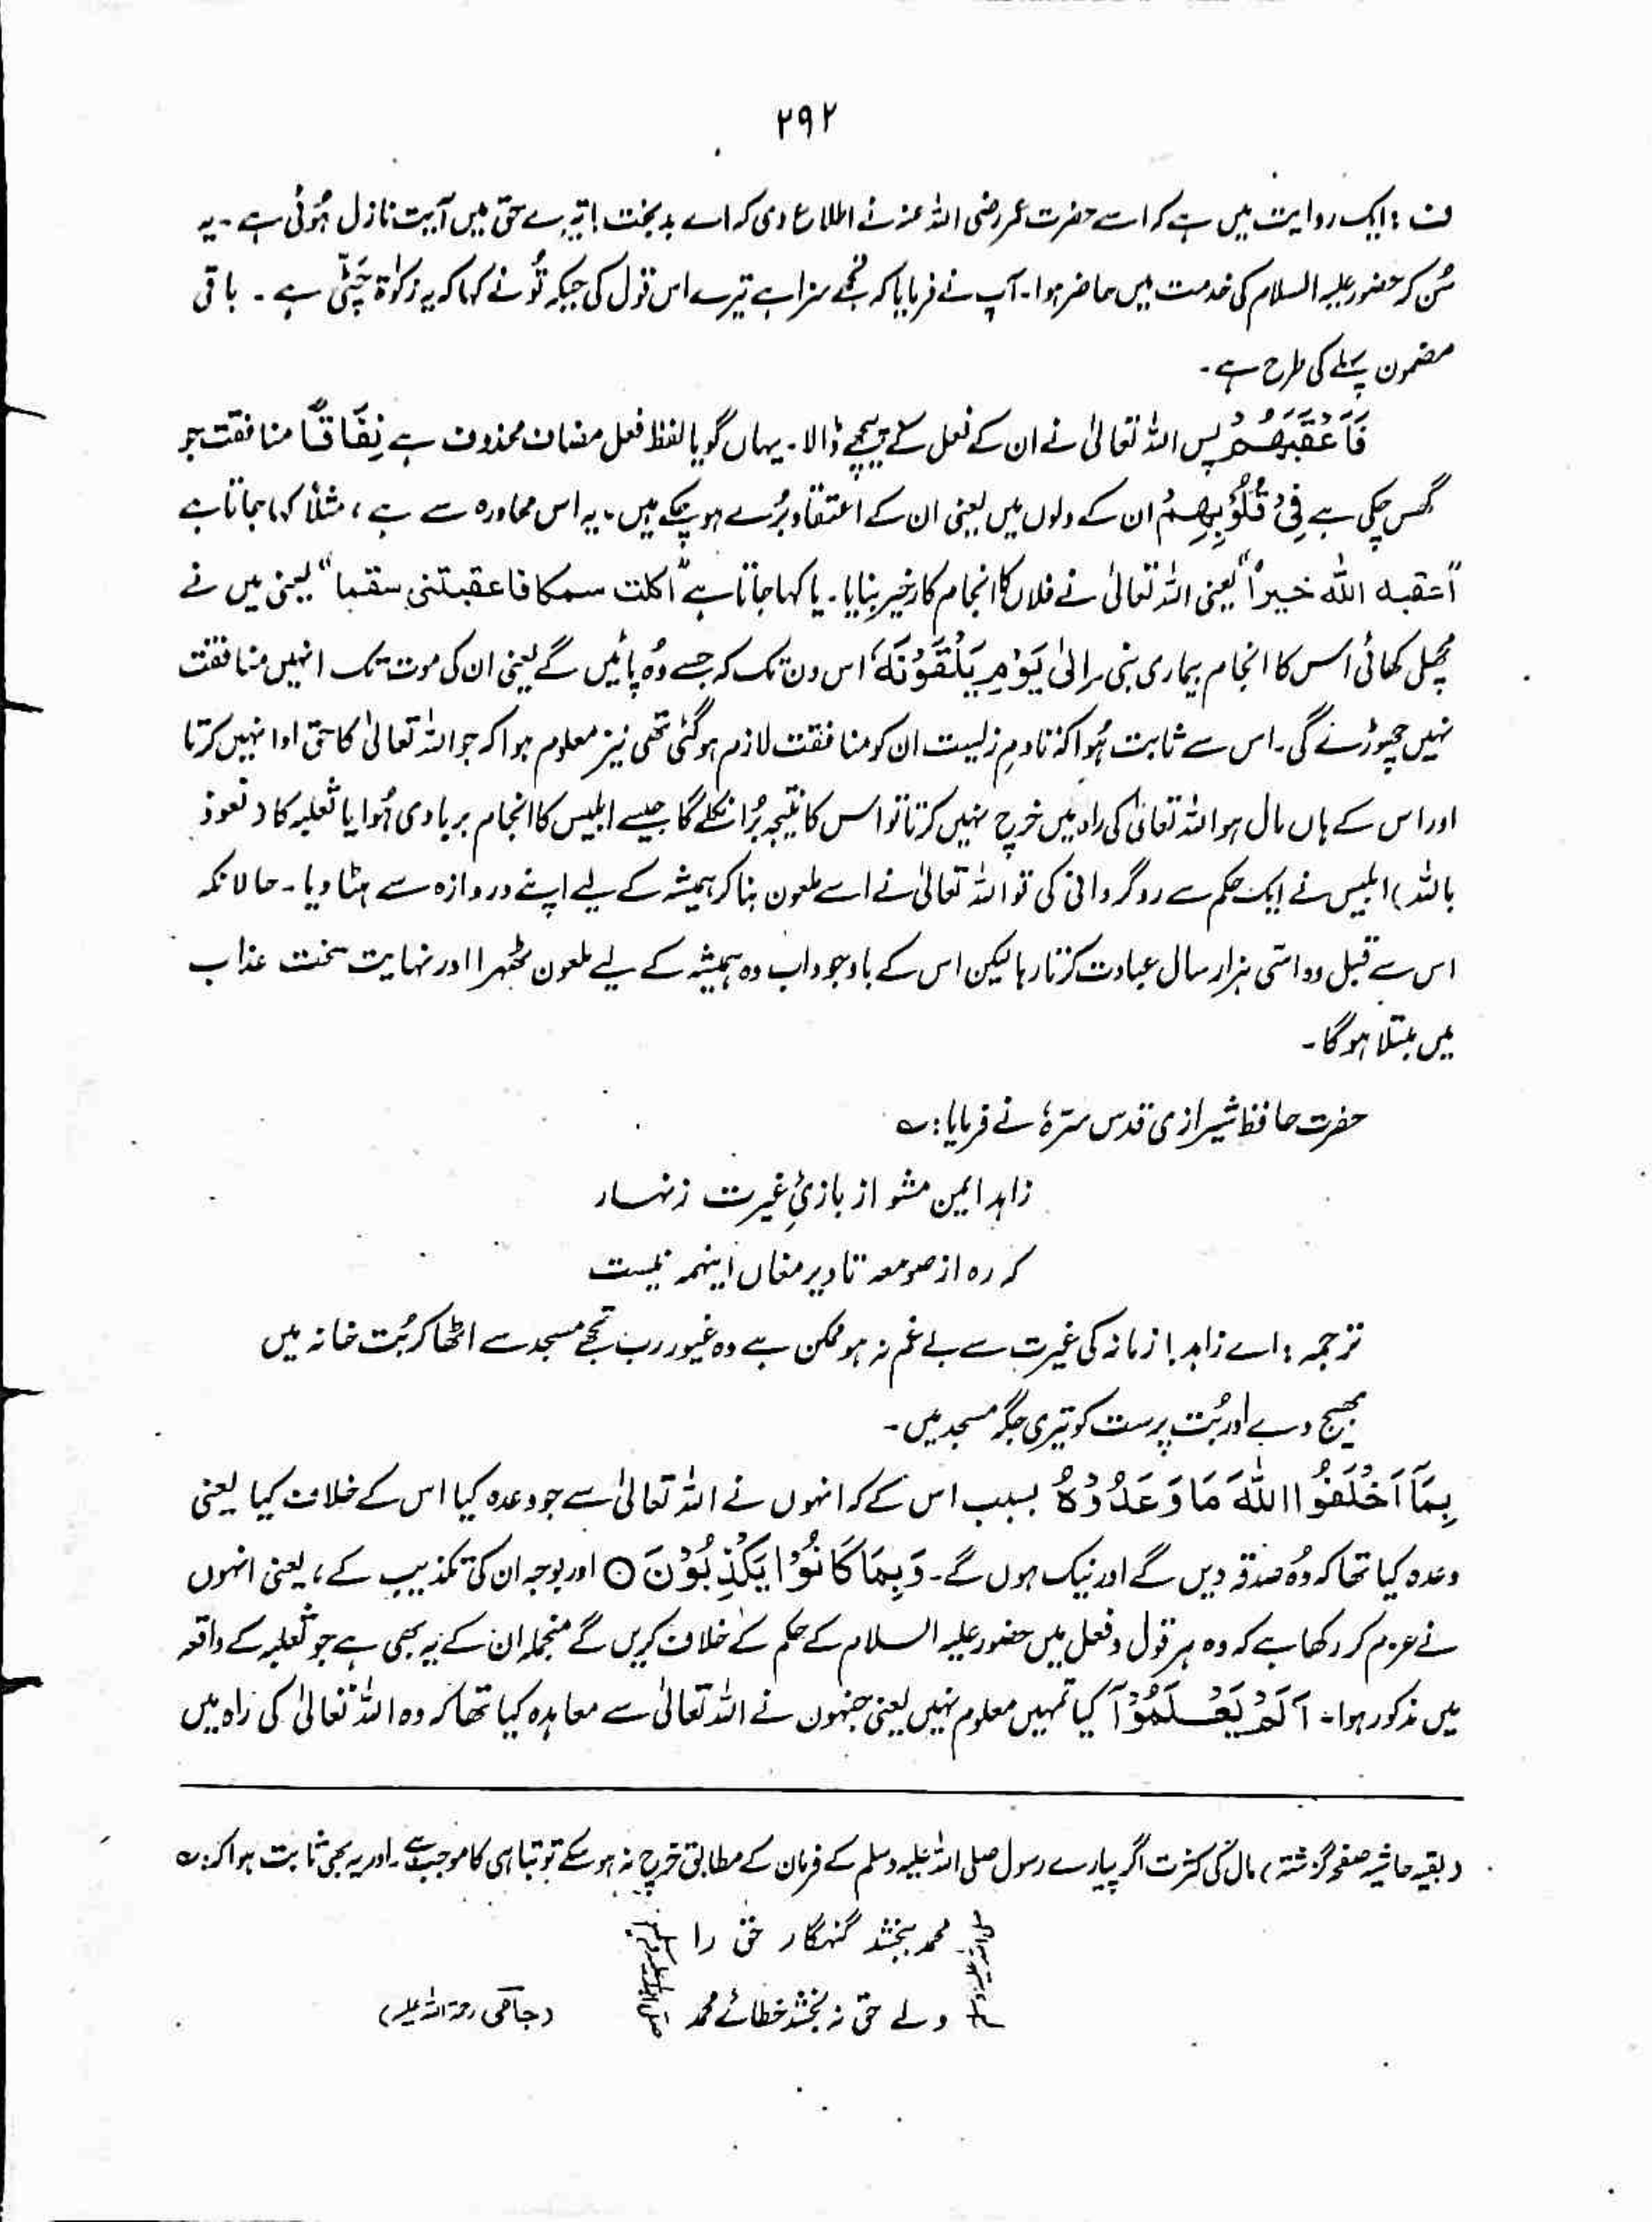 ۲۹۲
ف : ایک روایت میں ہے کہ اسے حضرت عمر رضی اللہ عنہ نے اطلاع دی کہ اے بدبخت! تیرے حق میں آیت نازل ہُوئی ہے ۔ یہ
سُن کر حضور علیہ السلام کی خدمت میں حاضر ہوا ۔ آپ نے فرمایا کہ تجھے سزا ہے تیرے اس قول کی جبکہ تُو نے کہا کہ یہ زکوٰۃ چَٹّی ہے ۔ باقی
مضمون پہلے کی طرح ہے ۔
فَاَعْقَبَهُمْ پس اللہ تعالیٰ نے ان کے فعل کے پیچھے ڈالا ۔ یہاں گویا لفظ فعل مضاف محذوف ہے نِفَاقًا منافقت جو
گھس چکی ہے فِیْ قُلُوْبِهِمْ ان کے دلوں میں یعنی ان کے اعتقاد بُرے ہو چکے ہیں ، یہ اس محاورہ سے ہے ، مثلاً کہا جاتا ہے
"اعقبہ اللہ خیراً" یعنی اللہ تعالیٰ نے فلاں کا انجام کار خیر بنایا ۔ یا کہا جاتا ہے "اکلت سمکا فاعقبتنی سقما" یعنی میں نے
مچھلی کھائی اُس کا انجام بیماری بنی ۔ اِلیٰ یَوْمِ یَلْقَوْنَهٗ اس دن تک کہ جسے وُہ پائیں گے یعنی ان کی موت تک انہیں منافقت
نہیں چھوڑے گی ۔ اس سے ثابت ہُوا کہ تادمِ زلیست ان کو منافقت لازم ہو گئی تھی نیز معلوم ہوا کہ جو اللہ تعالیٰ کا حق ادا نہیں کرتا
اور اس کے ہاں مال ہو اللہ تعالیٰ کی راہ میں خرچ نہیں کرتا تو اس کا نتیجہ بُرا نکلے گا جیسے ابلیس کا انجام بربادی ہُوا یا ثعلبہ کا ( نعوذ
باللہ ) ابلیس نے ایک حکم سے روگردانی کی تو اللہ تعالیٰ نے اسے ملعون بنا کر ہمیشہ کے لیے اپنے دروازہ سے ہٹا دیا ۔ حالانکہ
اس سے قبل وہ اسّی ہزار سال عبادت کرتا رہا لیکن اس کے باوجود اب وہ ہمیشہ کے لیے ملعون ٹھہرا اور نہایت سخت عذاب
میں مبتلا ہو گا ۔
حضرت حافظ شیرازی قدس سرّہٗ نے فرمایا : ؎
زاہد ایمن مشو از بازیِٔ غیرت زنہار
کہ رہ از صومعہ تا دیر مغاں اینہمہ نیست
ترجمہ : اے زاہد ! زمانہ کی غیرت سے بے غم نہ ہو ممکن ہے وہ غیور رب تجھے مسجد سے اٹھا کر بُت خانہ میں
بھیج دے اور بُت پرست کو تیری جگہ مسجد میں ۔
بِمَآ اَخْلَفُوا اللّٰهَ مَا وَعَدُوْهُ بسبب اس کے کہ انہوں نے اللہ تعالیٰ سے جو وعدہ کیا اس کے خلاف کیا یعنی
وعدہ کیا تھا کہ وُہ صدقہ دیں گے اور نیک ہوں گے ۔ وَبِمَا كَانُوْا یَكْذِبُوْنَ ○ اور بوجہ ان کی تکذیب کے ، یعنی انہوں
نے عزم کر رکھا ہے کہ وہ ہر قول و فعل میں حضور علیہ السلام کے حکم کے خلاف کریں گے منجملہ ان کے یہ بھی ہے جو ثعلبہ کے واقعہ
میں مذکور ہوا ۔ اَلَمْ یَعْلَمُوْآ کیا تمہیں معلوم نہیں یعنی جنہوں نے اللہ تعالیٰ سے معاہدہ کیا تھا کہ وہ اللہ تعالیٰ کی راہ میں
( بقیہ حاشیہ صفحہ گزشتہ ) مال کی کثرت اگر پیارے رسول صلی اللہ علیہ وسلم کے فرمان کے مطابق خرچ نہ ہو سکے تو تباہی کا موجب ہے ۔ اور یہ بھی ثابت ہوا کہ : ؎
محمد بخشد گنہگار حق را
ولے حق نہ بخشد خطائے محمد
صلی اللہ علیہ وسلم
( جامی رحمۃ اللہ علیہ )